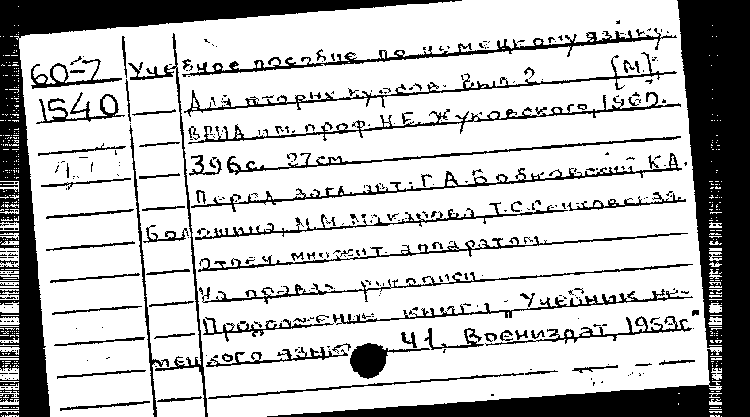 60-7 Учебное пособие по немецкому языку.
1540 Для вторых курсов. Вып. 2. [М],
ВВИА им. проф. Н.Е. Жуковского, 1960.
396с. 27см.
Перед загл. авт: Г.А. Бобковский, К.А.
Болошина, М.М. Макарова, Т.С. Сенковская.
Отпеч. множит. аппаратом.
На правах рукописи.
Продолжение книги „Учебник не-
мецкого языка ч 1, Воениздат, 1959г"